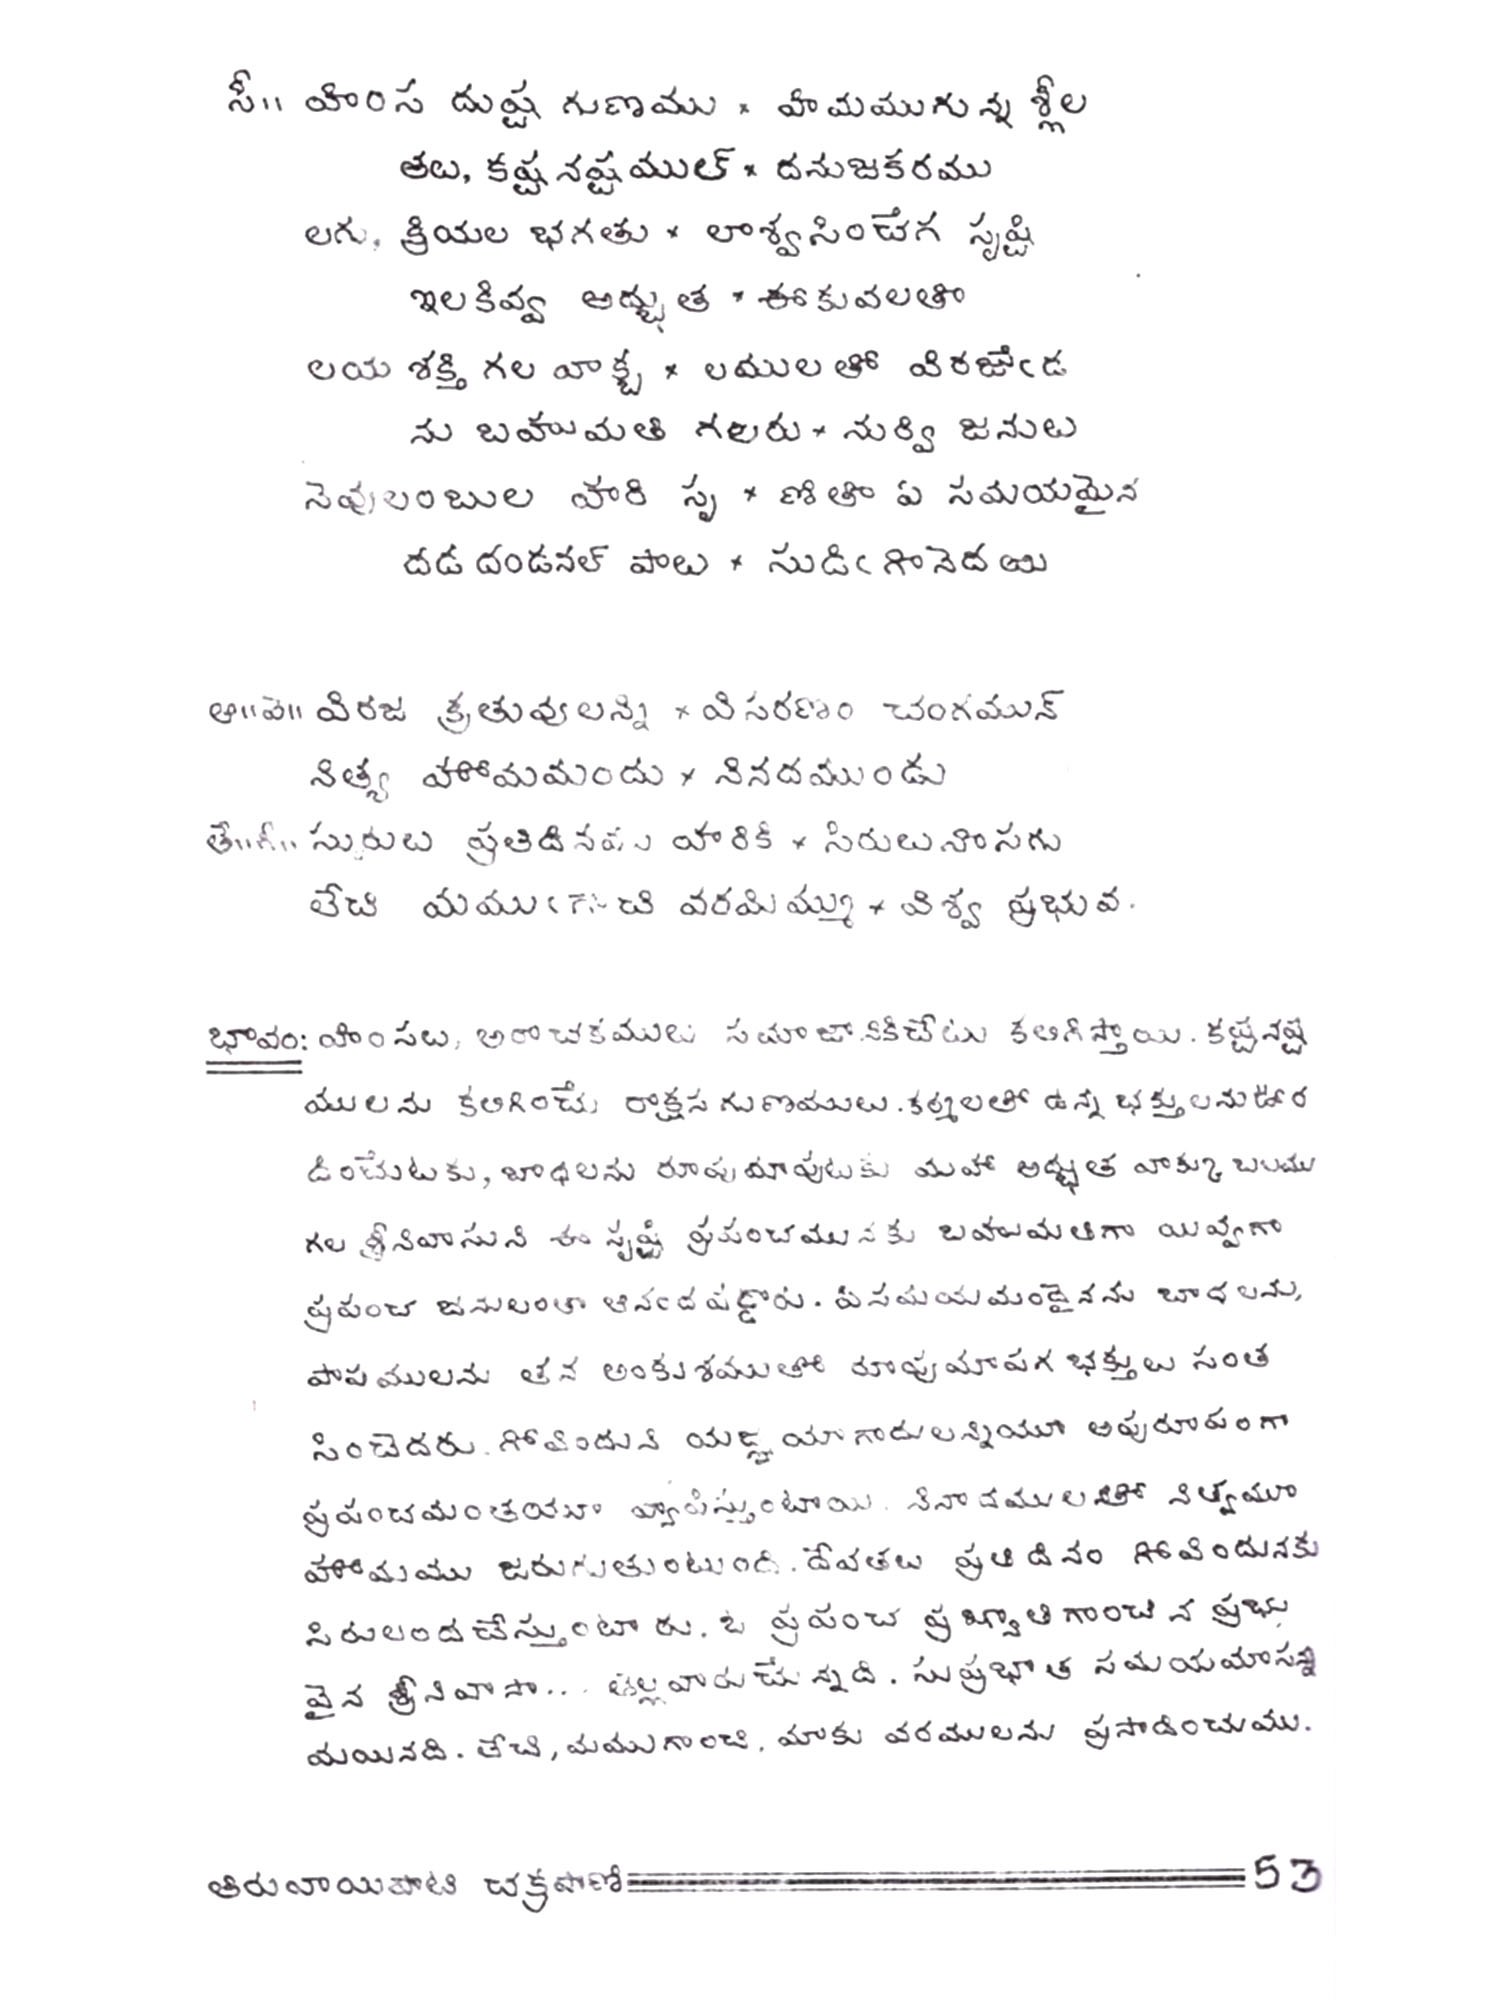 సీ॥ హింస దుష్ట గుణము × హిమముగున్న శ్లీల
తలు, కష్టనష్టముల్ × దనుజకరము
లగు, క్రియల భగతు × లాశ్వసించేగ సృష్టి
ఇలకివ్వ అద్భుత × ఈకువలతొ
లయ శక్తి గల వాక్బ × లములతో విరజేఁడ
ను బహుమతి గలరు × నుర్వి జనులు
నెవులంబుల హరి సృ × ణితొ ఏ సమయమైన
దడ దండనల్ పాలు × సుడిఁగొనెదయి
ఆ॥వె॥ విరజ క్రతువులన్ని × విసరణం చంగమున్
నిత్య హోమమందు × నినదముండు
తే॥గీ॥ సురులు ప్రతిదినము హరికి × సిరులునొసగు
లేచి మముఁగాచి వరమిమ్ము × విశ్వ ప్రభువ.
భావం: హింసలు, అరాచకములు సమాజానికిచేటు కలిగిస్తాయి. కష్టనష్ట
ములను కలిగించే రాక్షసగుణములు. కర్మలతో ఉన్న భక్తులనుఊర
డించేటకు, బాధలను రూపుమాపుటకు మహా అద్భుత వాక్కు బలము
గల శ్రీనివాసుని ఈ సృష్టి ప్రపంచమునకు బహుమతిగా యివ్వగా
ప్రపంచ జనులంతా ఆనందపడ్డారు. ఏసమయమందైనను బాధలను,
పాపములను తన అంకుశముతో రూపుమాపగ భక్తులు సంత
సించెదరు. గోవిందుని యజ్ఞయాగాదులన్నియూ అపురూపంగా
ప్రపంచమంతయూ వ్యాపిస్తుంటాయి. నినాదములతో నిత్యమూ
హోమము జరుగుతుంటుంది. దేవతలు ప్రతిదినం గోవిందునకు
సిరులందచేస్తుంటారు. ఓ ప్రపంచ ప్రఖ్యాతిగాంచిన ప్రభు
వైన శ్రీనివాసా... తెల్లవారుచున్నది. సుప్రభాత సమయమాసన్న
మయినది. లేచి, మముగాంచి, మాకు వరములను ప్రసాదించుము.
తిరువాయిపాటి చక్రపాణి 53